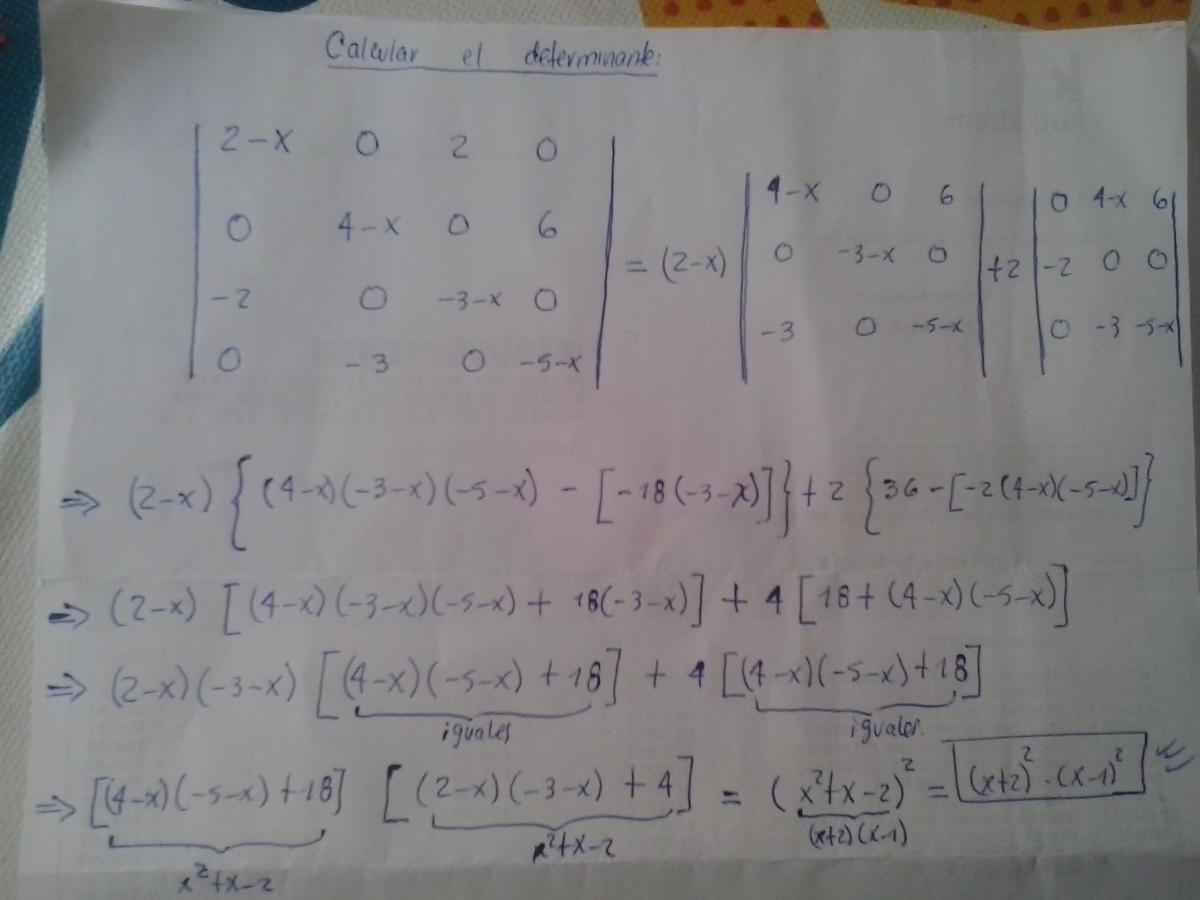 Calcular el determinante:
| 2-x 0 2 0 |
| 0 4-x 0 6 |
| -2 0 -3-x 0 |
| 0 -3 0 -5-x |
= (2-x)
| 4-x 0 6 |
| 0 -3-x 0 |
| -3 0 -5-x |
+2
| 0 4-x 6 |
| -2 0 0 |
| 0 -3 -5-x |
⇒ (2-x) { (4-x)(-3-x)(-5-x) - [-18(-3-x)]} + 2 {36-[-2(4-x)(-5-x)]}
⇒ (2-x) [(4-x)(-3-x)(-5-x) + 18(-3-x)] + 4 [18+(4-x)(-5-x)]
⇒ (2-x)(-3-x) [(4-x)(-5-x) +18] + 4 [(4-x)(-5-x)+18]
iguales iguales.
⇒ [(4-x)(-5-x)+18] [(2-x)(-3-x) + 4] = (x²+x-2)² = (x+2)²·(x-1)²
x²+x-2 x²+x-2 (x+2)(x-1)